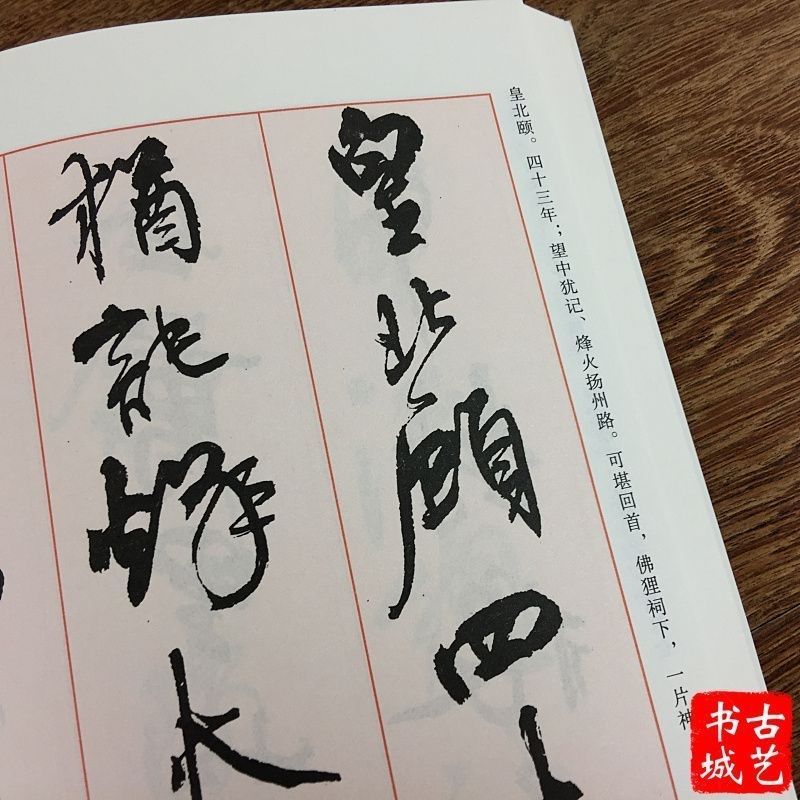 皇北颐。四十三年；望中犹记、烽火扬州路。可堪回首，佛狸祠下，一片神
皇北顧四
猶記烽火
古艺
书城